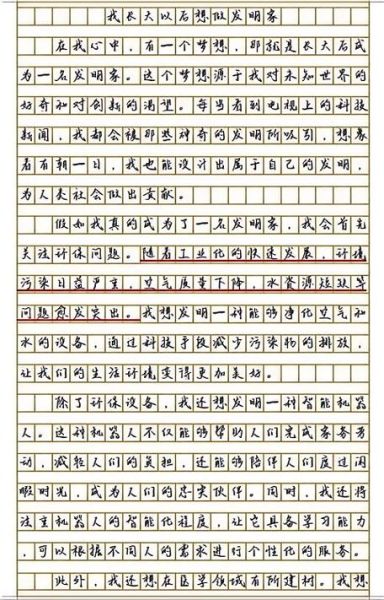 我长大以后想做发明家
在我心中，有一个梦想，那就是长大后成
为一名发明家。这个梦想源于我对未知世界的
好奇和对创新的渴望。每当看到电视上的科技
新闻，我都会被那些神奇的发明所吸引，想象
着有朝一日，我也能设计出属于自己的发明，
为人类社会做出贡献。
假如我真的成为了一名发明家，我会首先
关注环保问题。随着工业化的快速发展，环境
污染日益严重，空气质量下降，水资源短缺等
问题愈发突出。我想发明一种能够净化空气和
水的设备，通过科技手段减少污染物的排放，
让我们的生活环境变得更加美好。
除了环保设备，我还想发明一种智能机器
人。这种机器人不仅能够帮助人们完成家务劳
动，减轻人们的负担，还能够陪伴人们度过闲
暇时光，成为人们的忠实伙伴。同时，我还将
注重机器人的智能化程度，让它具备学习能力
，可以根据不同人的需求进行个性化的服务。
此外，我还想在医学领域有所建树。我想